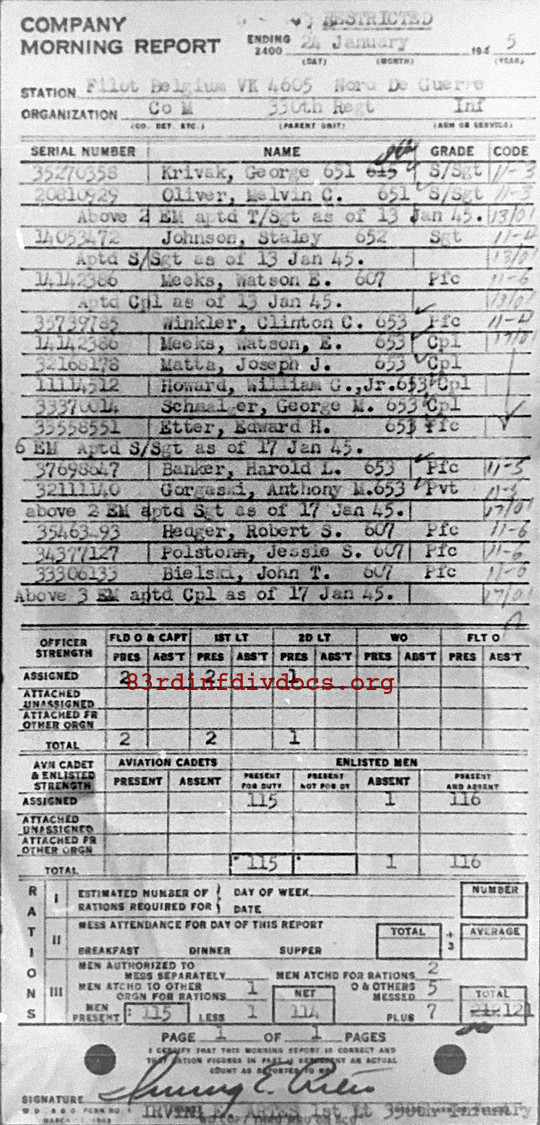 COMPANY
MORNING REPORT
RESTRICTED
ENDING 2400 24 January 194 5
(DAY) (MONTH) (YEAR)
STATION Filot Belgium VK 4605 Nord De Guerre
ORGANIZATION Co M 330th Regt Inf
(CO. DET. ETC.) (PARENT UNIT) (ARM OR SERVICE)
SERIAL NUMBER NAME GRADE CODE
35270358 Krivak, George 651 615 S/Sgt 11-3
20810929 Oliver, Melvin C. 651 S/Sgt 11-3
Above 2 EM aptd T/Sgt as of 13 Jan 45. 13/01
14053472 Johnson, Staley 652 Sgt 11-4
Aptd S/Sgt as of 13 Jan 45. 13/01
14142386 Meeks, Watson E. 607 Pfc 11-6
Aptd Cpl as of 13 Jan 45. 13/01
35739785 Winkler, Clinton C. 653 Pfc 11-4
14142386 Meeks, Watson, E. 653 Cpl 17/01
32168178 Matta, Joseph J. 653 Cpl
11114512 Howard, William G.,Jr.653 Cpl
33370014 Schmalger, George M. 653 Cpl
33558551 Etter, Edward H. 653 Pfc
6 EM Aptd S/Sgt as of 17 Jan 45.
37698647 Banker, Harold L. 653 Pfc 11-5
32111140 Gorgaski, Anthony M.653 Pvt 11-5
above 2 EM aptd Sgt as of 17 Jan 45. 17/01
35463493 Hedger, Robert S. 607 Pfc 11-6
34377127 Polston, Jessie S. 607 Pfc 11-6
33306133 Bielski, John T. 607 Pfc 11-6
Above 3 EM aptd Cpl as of 17 Jan 45. 17/01
OFFICER STRENGTH FLD O & CAPT 1ST LT 2D LT WO FLT O
PRES ABS'T PRES ABS'T PRES ABS'T PRES ABS'T PRES ABS'T
ASSIGNED 2 2 1
83rdinfdivdocs.org
ATTACHED UNASSIGNED
ATTACHED FR OTHER ORGN
TOTAL 2 2 1
AVN CADET & ENLISTED STRENGTH AVIATION CADETS ENLISTED MEN
PRESENT ABSENT PRESENT FOR DUTY PRESENT NOT FOR DY ABSENT PRESENT AND ABSENT
ASSIGNED 115 1 116
ATTACHED UNASSIGNED
ATTACHED FR OTHER ORGN
TOTAL 115 1 116
RATIONS
I ESTIMATED NUMBER OF RATIONS REQUIRED FOR DAY OF WEEK DATE NUMBER
II MESS ATTENDANCE FOR DAY OF THIS REPORT TOTAL ÷ 3 AVERAGE
BREAKFAST DINNER SUPPER
III MEN AUTHORIZED TO MESS SEPARATELY MEN ATCHD FOR RATIONS 2
MEN ATCHD TO OTHER ORGN FOR RATIONS 1 NET O & OTHERS MESSED 5 TOTAL
MEN PRESENT 115 LESS 1 114 PLUS 7 212 121
PAGE 1 OF 1 PAGES
I CERTIFY THAT THIS MORNING REPORT IS CORRECT AND
THAT RATION FIGURES IN PART III REPRESENT AN ACTUAL
COUNT AS REPORTED TO ME
SIGNATURE
1st Lt Infantry